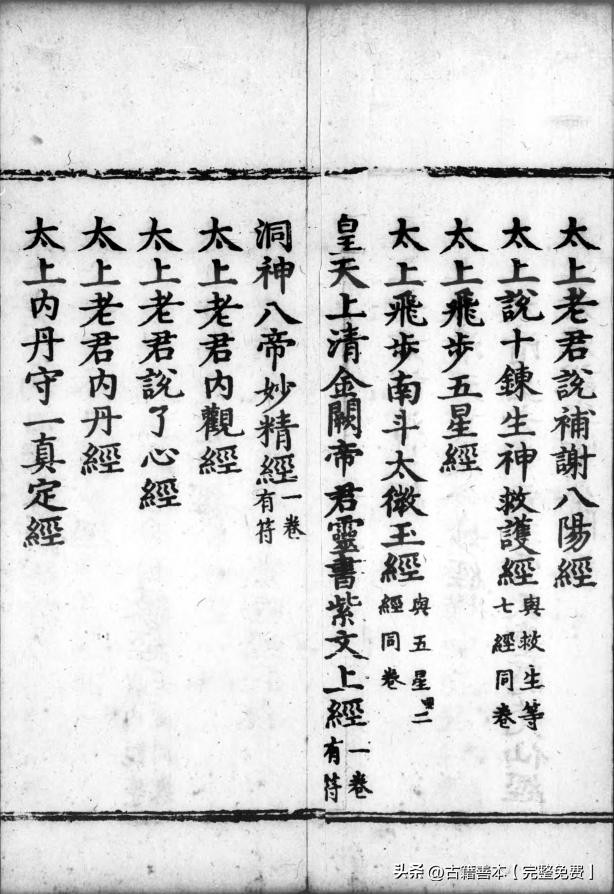 太上老君說補謝八陽經
太上說十鍊生神救護經 與救生等七經同卷
太上飛步五星經
太上飛步南斗太微玉經 與五星經同卷
皇天上清金闕帝君靈書紫文上經 一卷有符
洞神八帝妙精經 一卷有符
太上老君內觀經
太上老君說了心經
太上老君內丹經
太上內丹守一真定經
头条 @古籍善本(完整免费)